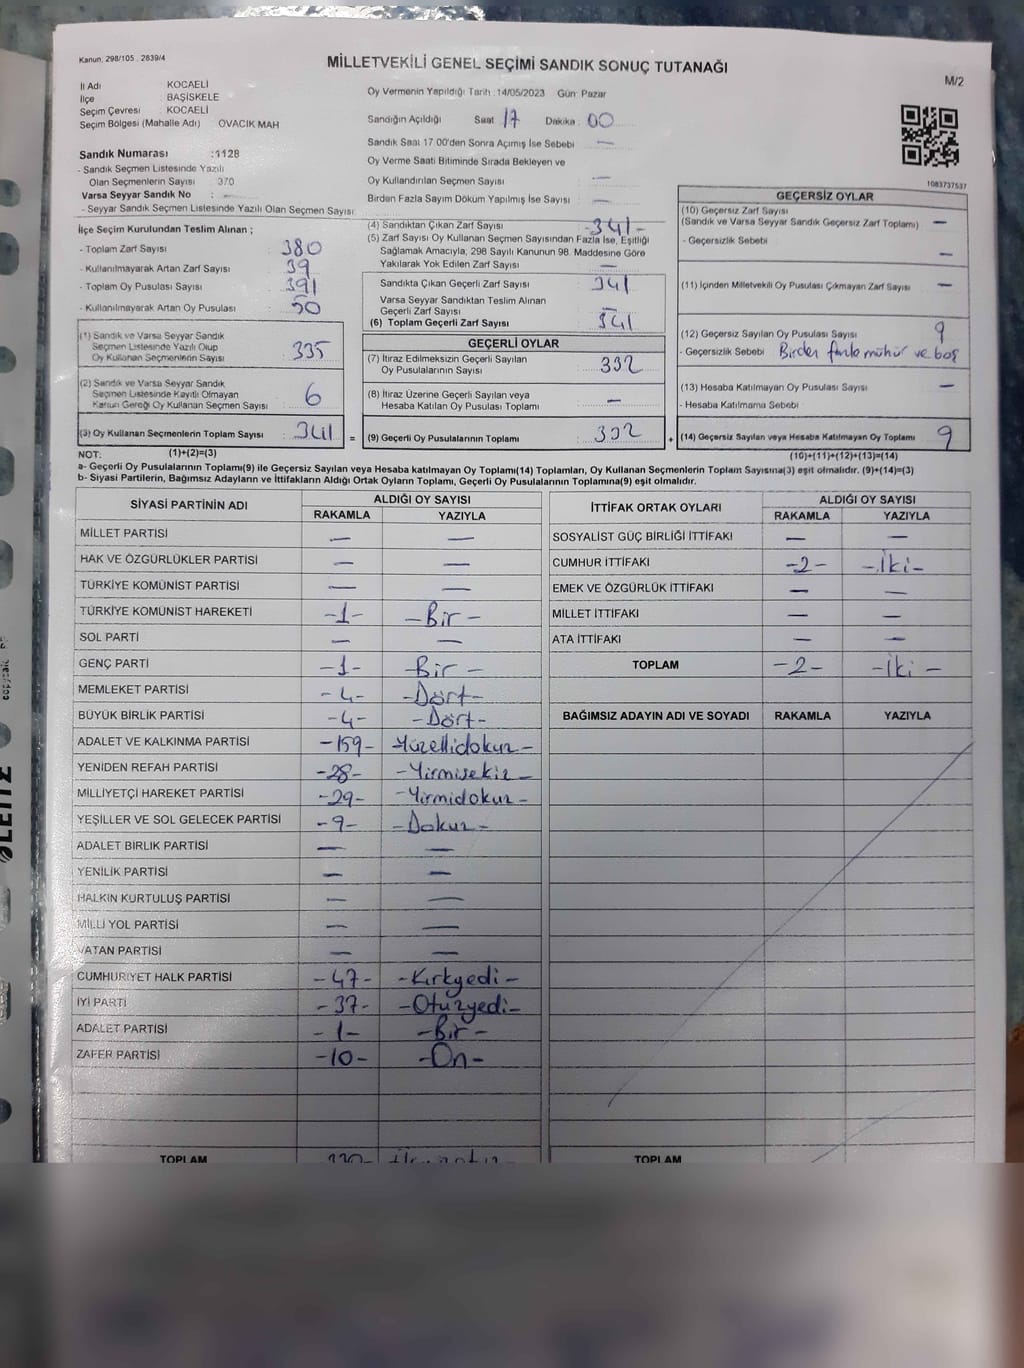 Kanun: 298/105 , 2839/4
MİLLETVEKİLİ GENEL SEÇİMİ SANDIK SONUÇ TUTANAĞI
M/2
İl Adı : KOCAELİ
İlçe : BAŞİSKELE
Seçim Çevresi : KOCAELİ
Seçim Bölgesi (Mahalle Adı) OVACIK MAH
Sandık Numarası :1128
- Sandık Seçmen Listesinde Yazılı
Olan Seçmenlerin Sayısı : 370
Varsa Seyyar Sandık No : -
- Seyyar Sandık Seçmen Listesinde Yazılı Olan Seçmen Sayısı:
Oy Vermenin Yapıldığı Tarih :14/05/2023 Gün: Pazar
Sandığın Açıldığı Saat 17 Dakika : 00
Sandık Saat 17.00'den Sonra Açımış İse Sebebi —
Oy Verme Saati Bitiminde Sırada Bekleyen ve
Oy Kullandırılan Seçmen Sayısı —
Birden Fazla Sayım Döküm Yapılmış İse Sayısı —
1083737537
İlçe Seçim Kurulundan Teslim Alınan ;
- Toplam Zarf Sayısı 380
- Kullanılmayarak Artan Zarf Sayısı 39
- Toplam Oy Pusulası Sayısı 391
- Kullanılmayarak Artan Oy Pusulası 50
(1) Sandık ve Varsa Seyyar Sandık
Seçmen Listesinde Yazılı Olup
Oy Kullanan Seçmenlerin Sayısı : 335
(2) Sandık ve Varsa Seyyar Sandık
Seçmen Listesinde Kayıtlı Olmayan
Kanun Gereği Oy Kullanan Seçmen Sayısı : 6
(3) Oy Kullanan Seçmenlerin Toplam Sayısı : 341 =
(4) Sandıktan Çıkan Zarf Sayısı -341-
(5) Zarf Sayısı Oy Kullanan Seçmen Sayısından Fazla İse, Eşitliği
Sağlamak Amacıyla, 298 Sayılı Kanunun 98. Maddesine Göre
Yakılarak Yok Edilen Zarf Sayısı —
Sandıkta Çıkan Geçerli Zarf Sayısı : 341
Varsa Seyyar Sandıktan Teslim Alınan
Geçerli Zarf Sayısı
(6) Toplam Geçerli Zarf Sayısı : 341
GEÇERLİ OYLAR
(7) İtiraz Edilmeksizin Geçerli Sayılan
Oy Pusulalarının Sayısı : 332
(8) İtiraz Üzerine Geçerli Sayılan veya
Hesaba Katılan Oy Pusulası Toplamı : —
(9) Geçerli Oy Pusulalarının Toplamı : 332 +
GEÇERSİZ OYLAR
(10) Geçersiz Zarf Sayısı
(Sandık ve Varsa Seyyar Sandık Geçersiz Zarf Toplamı) —
- Geçersizlik Sebebi —
(11) İçinden Milletvekili Oy Pusulası Çıkmayan Zarf Sayısı —
(12) Geçersiz Sayılan Oy Pusulası Sayısı 9
- Geçersizlik Sebebi Birden fazla mühür ve boş
(13) Hesaba Katılmayan Oy Pusulası Sayısı —
- Hesaba Katılmama Sebebi
(14) Geçersiz Sayılan veya Hesaba Katılmayan Oy Toplamı 9
NOT: (1)+(2)=(3) (10)+(11)+(12)+(13)=(14)
a- Geçerli Oy Pusulalarının Toplamı(9) ile Geçersiz Sayılan veya Hesaba katılmayan Oy Toplamı(14) Toplamları, Oy Kullanan Seçmenlerin Toplam Sayısına(3) eşit olmalıdır. (9)+(14)=(3)
b- Siyasi Partilerin, Bağımsız Adayların ve İttifakların Aldığı Ortak Oyların Toplamı, Geçerli Oy Pusulalarının Toplamına(9) eşit olmalıdır.
SİYASİ PARTİNİN ADI ALDIĞI OY SAYISI
RAKAMLA YAZIYLA
MİLLET PARTİSİ — —
HAK VE ÖZGÜRLÜKLER PARTİSİ — —
TÜRKİYE KOMÜNİST PARTİSİ — —
TÜRKİYE KOMÜNİST HAREKETİ -1- -Bir-
SOL PARTİ — —
GENÇ PARTİ -1- -Bir-
MEMLEKET PARTİSİ -4- -Dört-
BÜYÜK BİRLİK PARTİSİ -4- -Dört-
ADALET VE KALKINMA PARTİSİ -159- Yüzellidokuz-
YENİDEN REFAH PARTİSİ -28- -Yirmisekiz-
MİLLİYETÇİ HAREKET PARTİSİ -29- -Yirmidokuz-
YEŞİLLER VE SOL GELECEK PARTİSİ -9- -Dokuz-
ADALET BİRLİK PARTİSİ — —
YENİLİK PARTİSİ — —
HALKIN KURTULUŞ PARTİSİ — —
MİLLİ YOL PARTİSİ — —
VATAN PARTİSİ — —
CUMHURİYET HALK PARTİSİ -47- -Kırkyedi-
İYİ PARTİ -37- -Otuzyedi-
ADALET PARTİSİ -1- -Bir-
ZAFER PARTİSİ -10- -On-
TOPLAM 330-
İTTİFAK ORTAK OYLARI ALDIĞI OY SAYISI
RAKAMLA YAZIYLA
SOSYALİST GÜÇ BİRLİĞİ İTTİFAKI — —
CUMHUR İTTİFAKI -2- -İki-
EMEK VE ÖZGÜRLÜK İTTİFAKI — —
MİLLET İTTİFAKI — —
ATA İTTİFAKI — —
TOPLAM -2- -İki-
BAĞIMSIZ ADAYIN ADI VE SOYADI RAKAMLA YAZIYLA
TOPLAM